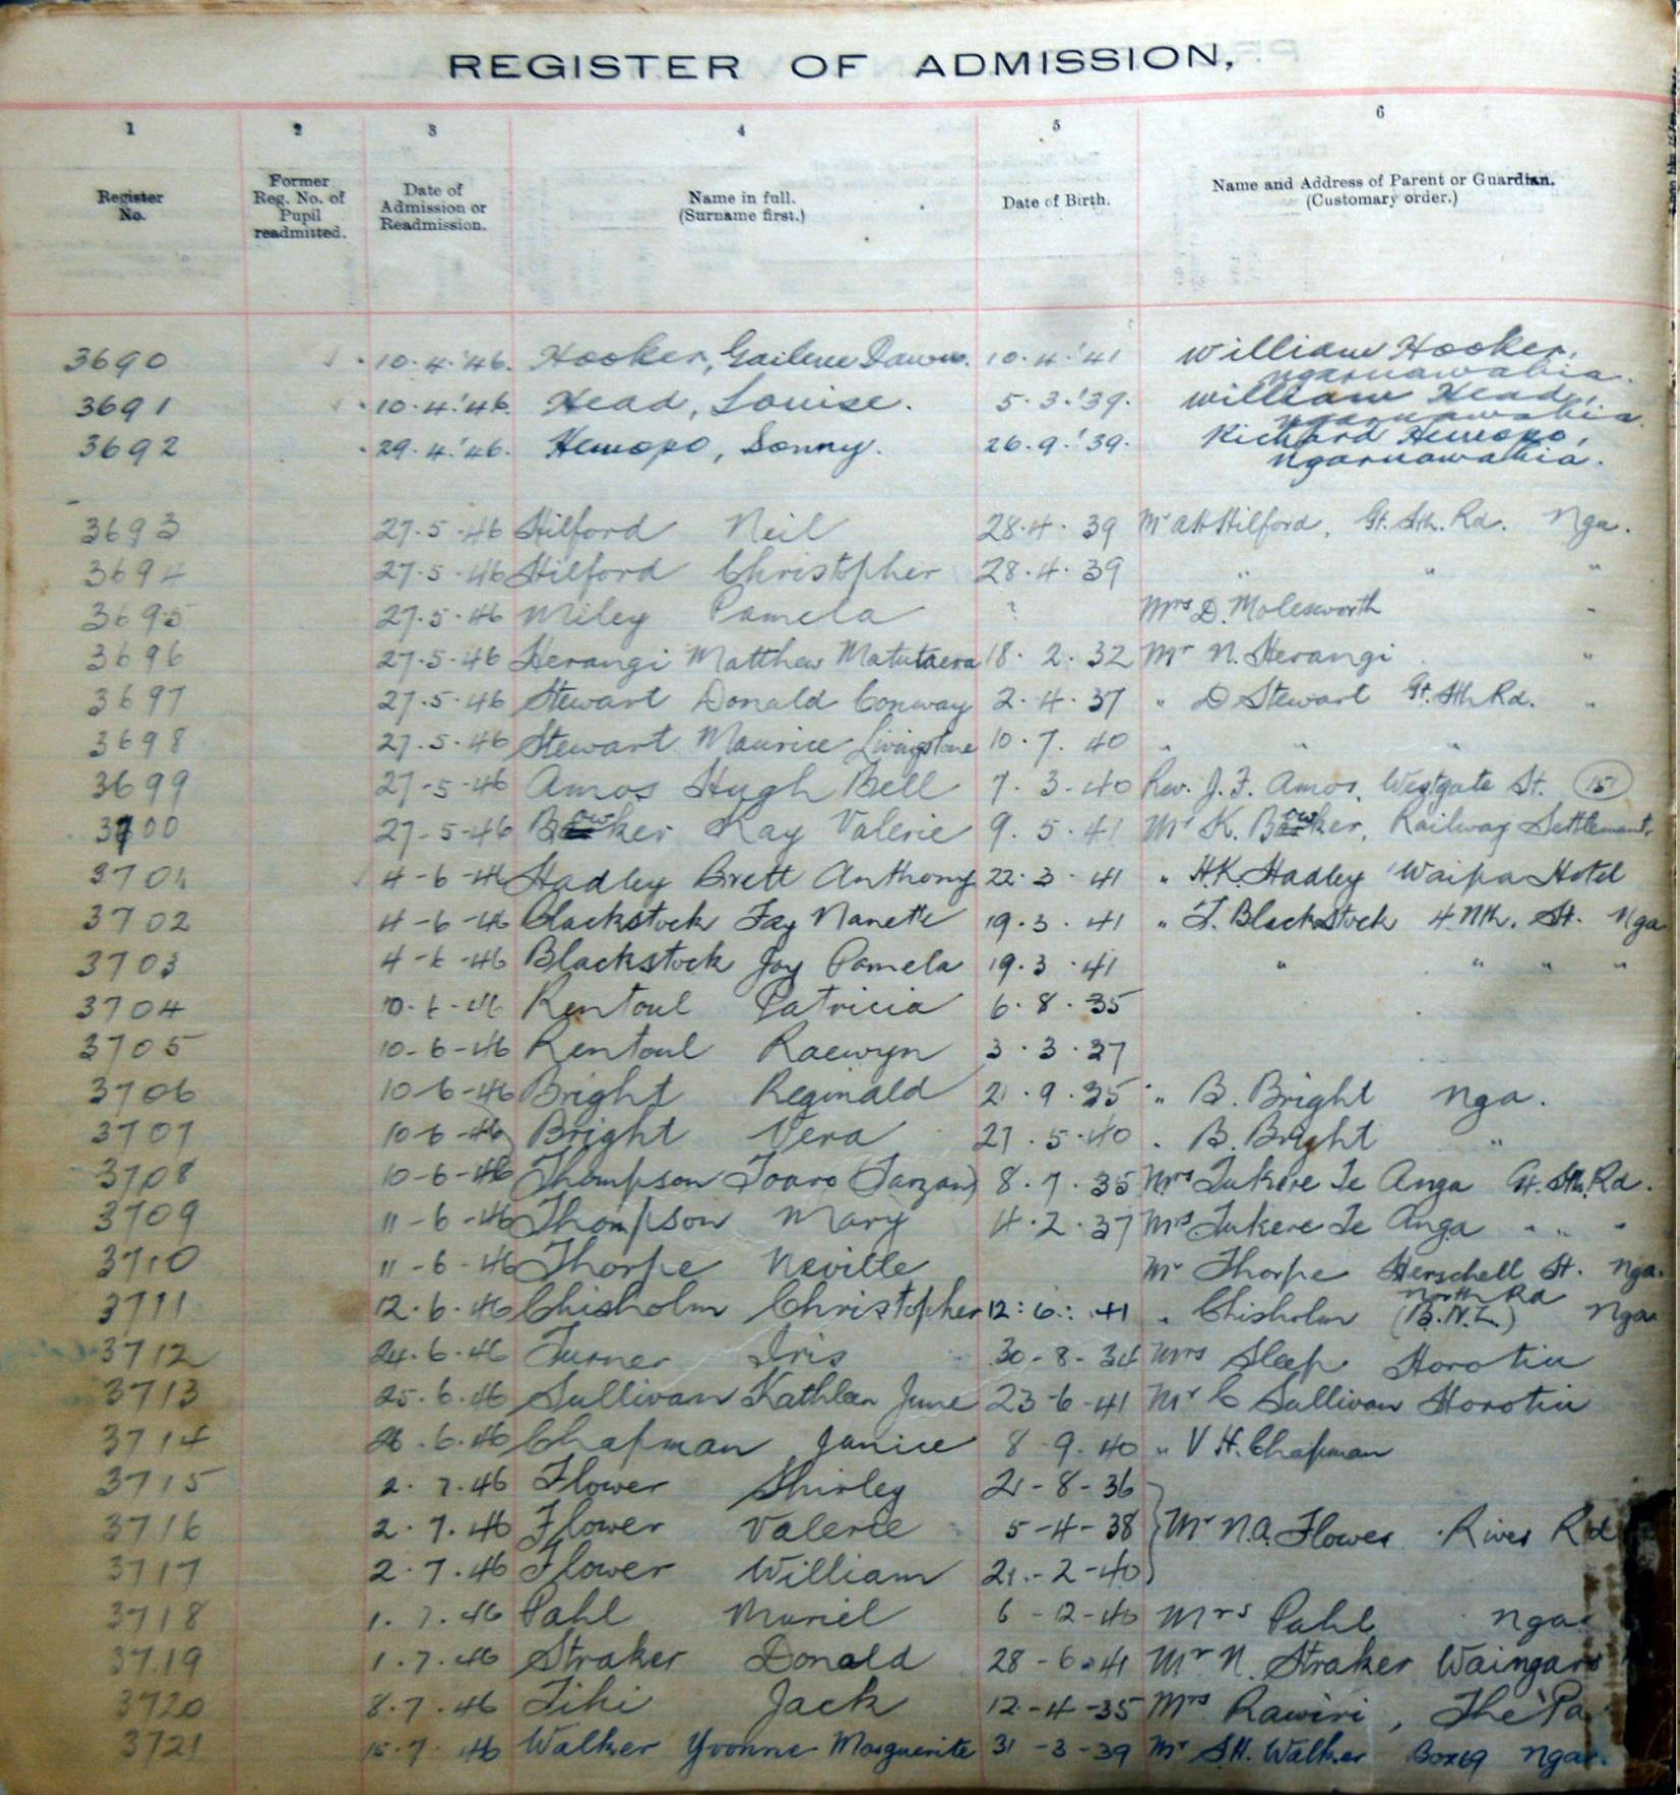 REGISTER OF ADMISSION.
1 2 3 4 5 6
Register No. Former Reg. No. of Pupil readmitted. Date of Admission or Readmission. Name in full. (Surname first.) Date of Birth. Name and Address of Parent or Guardian. (Customary order.)
3690 10.4.'46. Hooker, Gailene Dawn. 10.4.'41 William Hooker,
Ngaruawahia.
3691 10.4.'46. Head, Louise. 5.3.'39. William Head,
Ngaruawahia.
3692 29.4.'46. Hemopo, Sonny. 26.9.'39. Richard Hemopo,
Ngaruawahia.
3693 27.5.46 Hilford Neil 28.4.39 Mr A H Hilford, Gt. Sth. Rd. Nga.
3694 27.5.46 Hilford Christopher 28.4.39 " " "
3695 27.5.46 Miley Pamela ? Mrs D. Molesworth "
3696 27.5.46 Herangi Matthew Matutaera 18.2.32 Mr N. Herangi "
3697 27.5.46 Stewart Donald Conway 2.4.37 " D Stewart Gt. Sth Rd. "
3698 27.5.46 Stewart Maurice Livingstone 10.7.40 " " "
3699 27-5-46 Amos Hugh Bell 7.3.40 Rev. J. F. Amos, Westgate St. 151
3700 27-5-46 Bowker Kay Valerie 9.5.41 Mr K. Bowker, Railway Settlement.
3701 4-6-46 Hadley Brett Anthony 22.3.41 " H.K. Hadley Waipa Hotel
3702 4-6-46 Blackstock Fay Nanette 19.3.41 " F. Blackstock 4 Nth. St. Nga
3703 4-6-46 Blackstock Joy Pamela 19.3.41 " " " "
3704 10-6-46 Rentoul Patricia 6.8.35
3705 10-6-46 Rentoul Raewyn 3.3.37
3706 10-6-46 Bright Reginald 21.9.35 " B. Bright Nga.
3707 10-6-46 Bright Vera 27.5.40 " B. Bright "
3708 10-6-46 Thompson (Tarzan) 8.7.35 Mrs Tukere Te Anga Gt. Sth. Rd.
3709 11-6-46 Thompson Mary 4.2.37 Mrs Tukere Te Anga " " "
3710 11-6-46 Thorpe Neville Mr Thorpe Herschell St. Nga.
3711 12.6.46 Chisholm Christopher 12:6:41 " Chisholm North Rd (B.N.Z.) Nga
3712 24.6.46 Turner Iris 30-8-34 Mrs Sleep Horotiu
3713 25.6.46 Sullivan Kathleen June 23-6-41 Mr C Sullivan Horotiu
3714 26.6.46 Chapman Janice 8.9.40 " V H. Chapman
3715 2.7.46 Flower Shirley 21-8-36
3716 2.7.46 Flower Valerie 5-4-38 Mr N.A. Flower River Rd
3717 2.7.46 Flower William 21-2-40
3718 1.7.46 Pahl Muriel 6-12-40 Mrs Pahl Nga
3719 1.7.46 Straker Donald 28-6-41 Mr N. Straker Waingaro
3720 8.7.46 Tihi Jack 12-4-35 Mrs Rawiri, The Pa
3721 15.7.46 Walker Yvonne Marguerite 31-3-39 Mr S.H. Walker Box 69 Nga.